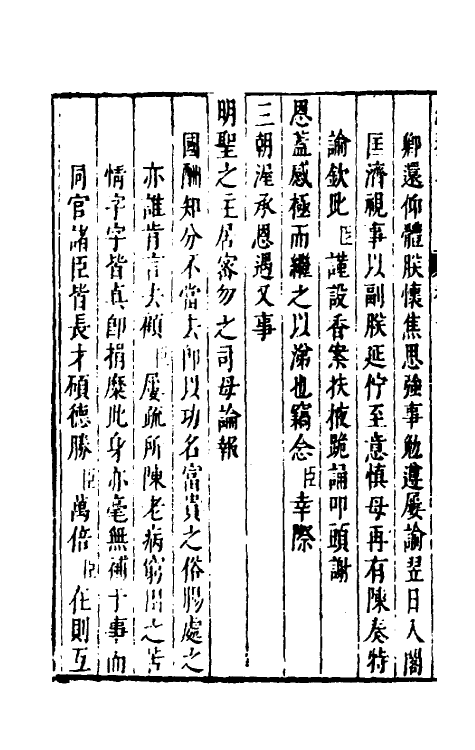 卿還仰體朕懷焦思強事勉遵屢諭翌日入閣
匡濟視事以副朕延佇至意慎毋再有陳奏特
諭欽此臣謹設香案扶掖跪誦叩頭謝
恩蓋感極而繼之以涕也竊念臣幸際
三朝渥承恩遇又事
明聖之主居密勿之司毋論報
國酬知分不當去即以功名富貴之俗腸處之
亦誰肯言去顧臣屢疏所陳老病窮出之苦
情字字皆真即捐糜此身亦毫無補于事而
同官諸臣皆長才碩德勝臣萬倍臣在則互